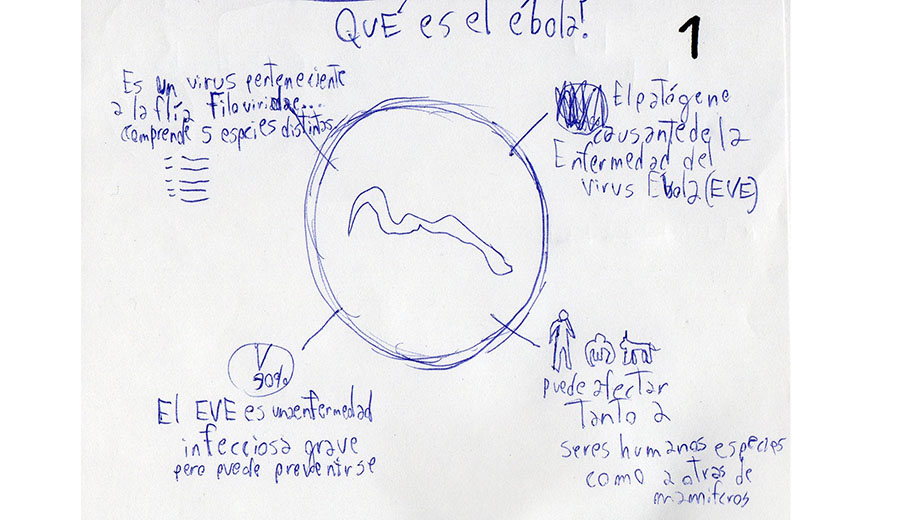 QUÉ es el ébola!
1
Es un virus perteneciente
a la flía Filoviridae...
comprende 5 especies distintas
El patógeno
causante de la
Enfermedad del
virus Ébola (EVE)
90%
El EVE es una enfermedad
infecciosa grave
pero puede prevenirse
puede afectar
Tanto a
seres humanos especies
como a otras de
mamíferos